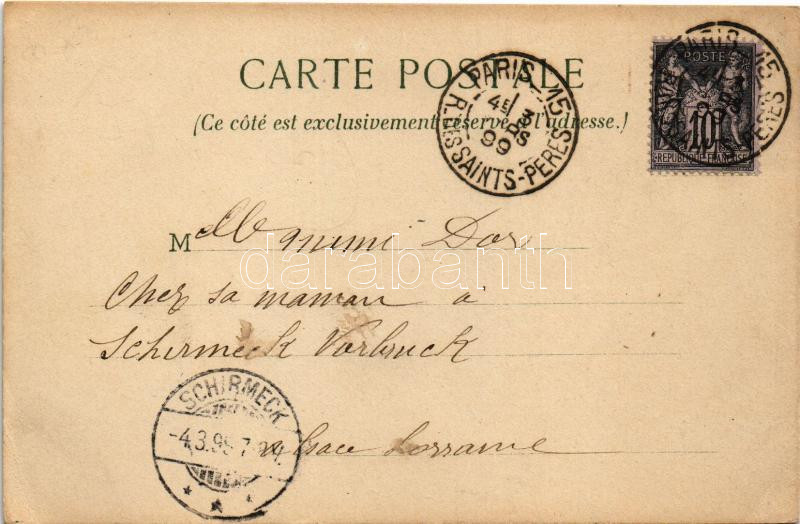 CARTE POSTALE
(Ce côté est exclusivement réservé à l'adresse.)
PARIS 15
R. DES SAINTS-PERES
4E
3
99
POSTE
10
REPUBLIQUE FRANCAISE
PARIS 15
Mlle Mimi Dor
Chez sa maman à
Schirmeck Vorbruck
Alsace Lorraine
SCHIRMECK
-4.3.99.7
darabanth